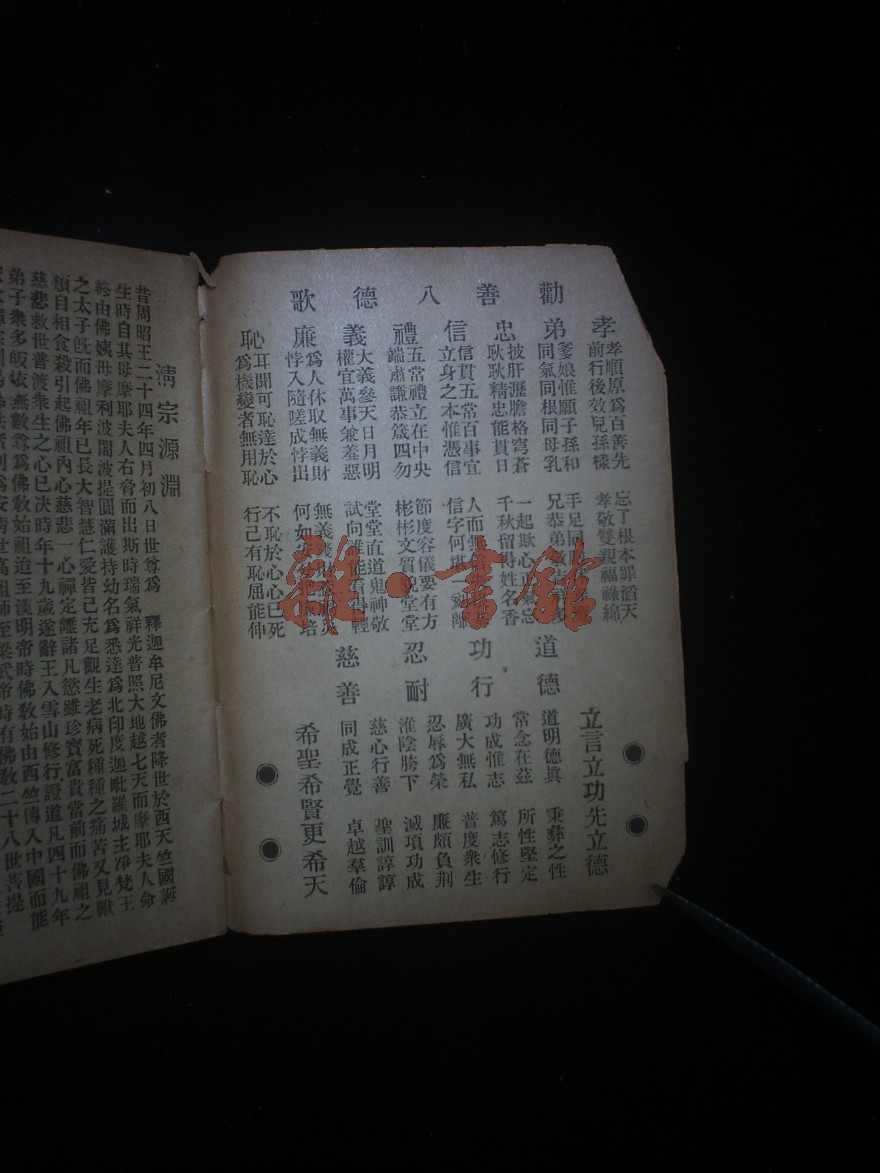 勸善八德歌
孝
孝順原爲百善先
忘了根本罪滔天
前行後效兒孫樣
孝敬雙親福祿綿
弟
爹娘惟願子孫和
手足同
同氣同根同母乳
兄恭弟
忠
披肝瀝膽格穹蒼
一起欺心
忘
耿耿精忠能貫日
千秋留得姓名香
信
信貫五常百事宜
人而無
立身之本惟憑信
信字何
離
禮
五常禮立在中央
節度容儀要有方
端肅謙恭箴四勿
彬彬文質
堂堂
義
大義參天日月明
堂堂直道鬼神敬
權宜萬事兼羞惡
試向
輕
廉
爲人休取無義財
無義
悖入隨嗟成悖出
何如
培
恥
耳聞可恥達於心
不恥於心心已死
爲機變者無用恥
行己有恥屈能伸
立言立功先立德
道德
道明德眞
秉彝之性
常念在茲
所性堅定
功行
功成惟志
篤志修行
廣大無私
普度衆生
忍耐
忍辱爲榮
廉頗負荆
淮陰勝下
滅項功成
慈善
慈心行善
聖訓諄諄
同成正覺
卓越羣倫
希聖希賢更希天
淸宗源淵
昔周昭王二十四年四月初八日世尊爲 釋迦牟尼文佛者降世於西天竺國誕
生時自其母摩耶夫人右脅而出斯時瑞氣祥光普照大地越七天而摩耶夫人命
終由佛姨毋摩利波闍波提圓滿護持幼名爲悉達爲北印度迦毗羅城主淨梵王
之太子旣而佛祖年已長大智慧仁愛皆已充足觀生老病死種種之痛苦又見獸
類自相食殺引起佛祖內心慈悲一心禪定離諸凡慾雖珍寶富貴當前而佛祖之
慈悲救世普渡衆生之心已決時年十九歲遂辭王入雪山修行證道凡四十九年
弟子衆多皈依無數尊爲佛敎始祖迨至漢明帝時佛敎始由西竺傳入中國而能
祖師至梁武帝時有佛敎二十八世菩提